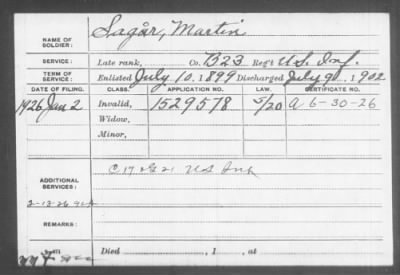 NAME OF SOLDIER: Sagár, Martin
SERVICE: Late rank, Co. B 23 Reg't U.S. Inf.
TERM OF SERVICE: Enlisted July 10, 1899 Discharged July 9, 1902
DATE OF FILING. CLASS. APPLICATION NO. LAW. CERTIFICATE NO.
1926 Jan 2 Invalid, 1529578 5/20 A 6-30-26
Widow,
Minor,
C. 17 & G 21 US Inf
ADDITIONAL SERVICES:
2-13-26
REMARKS:
Died , 1 , at